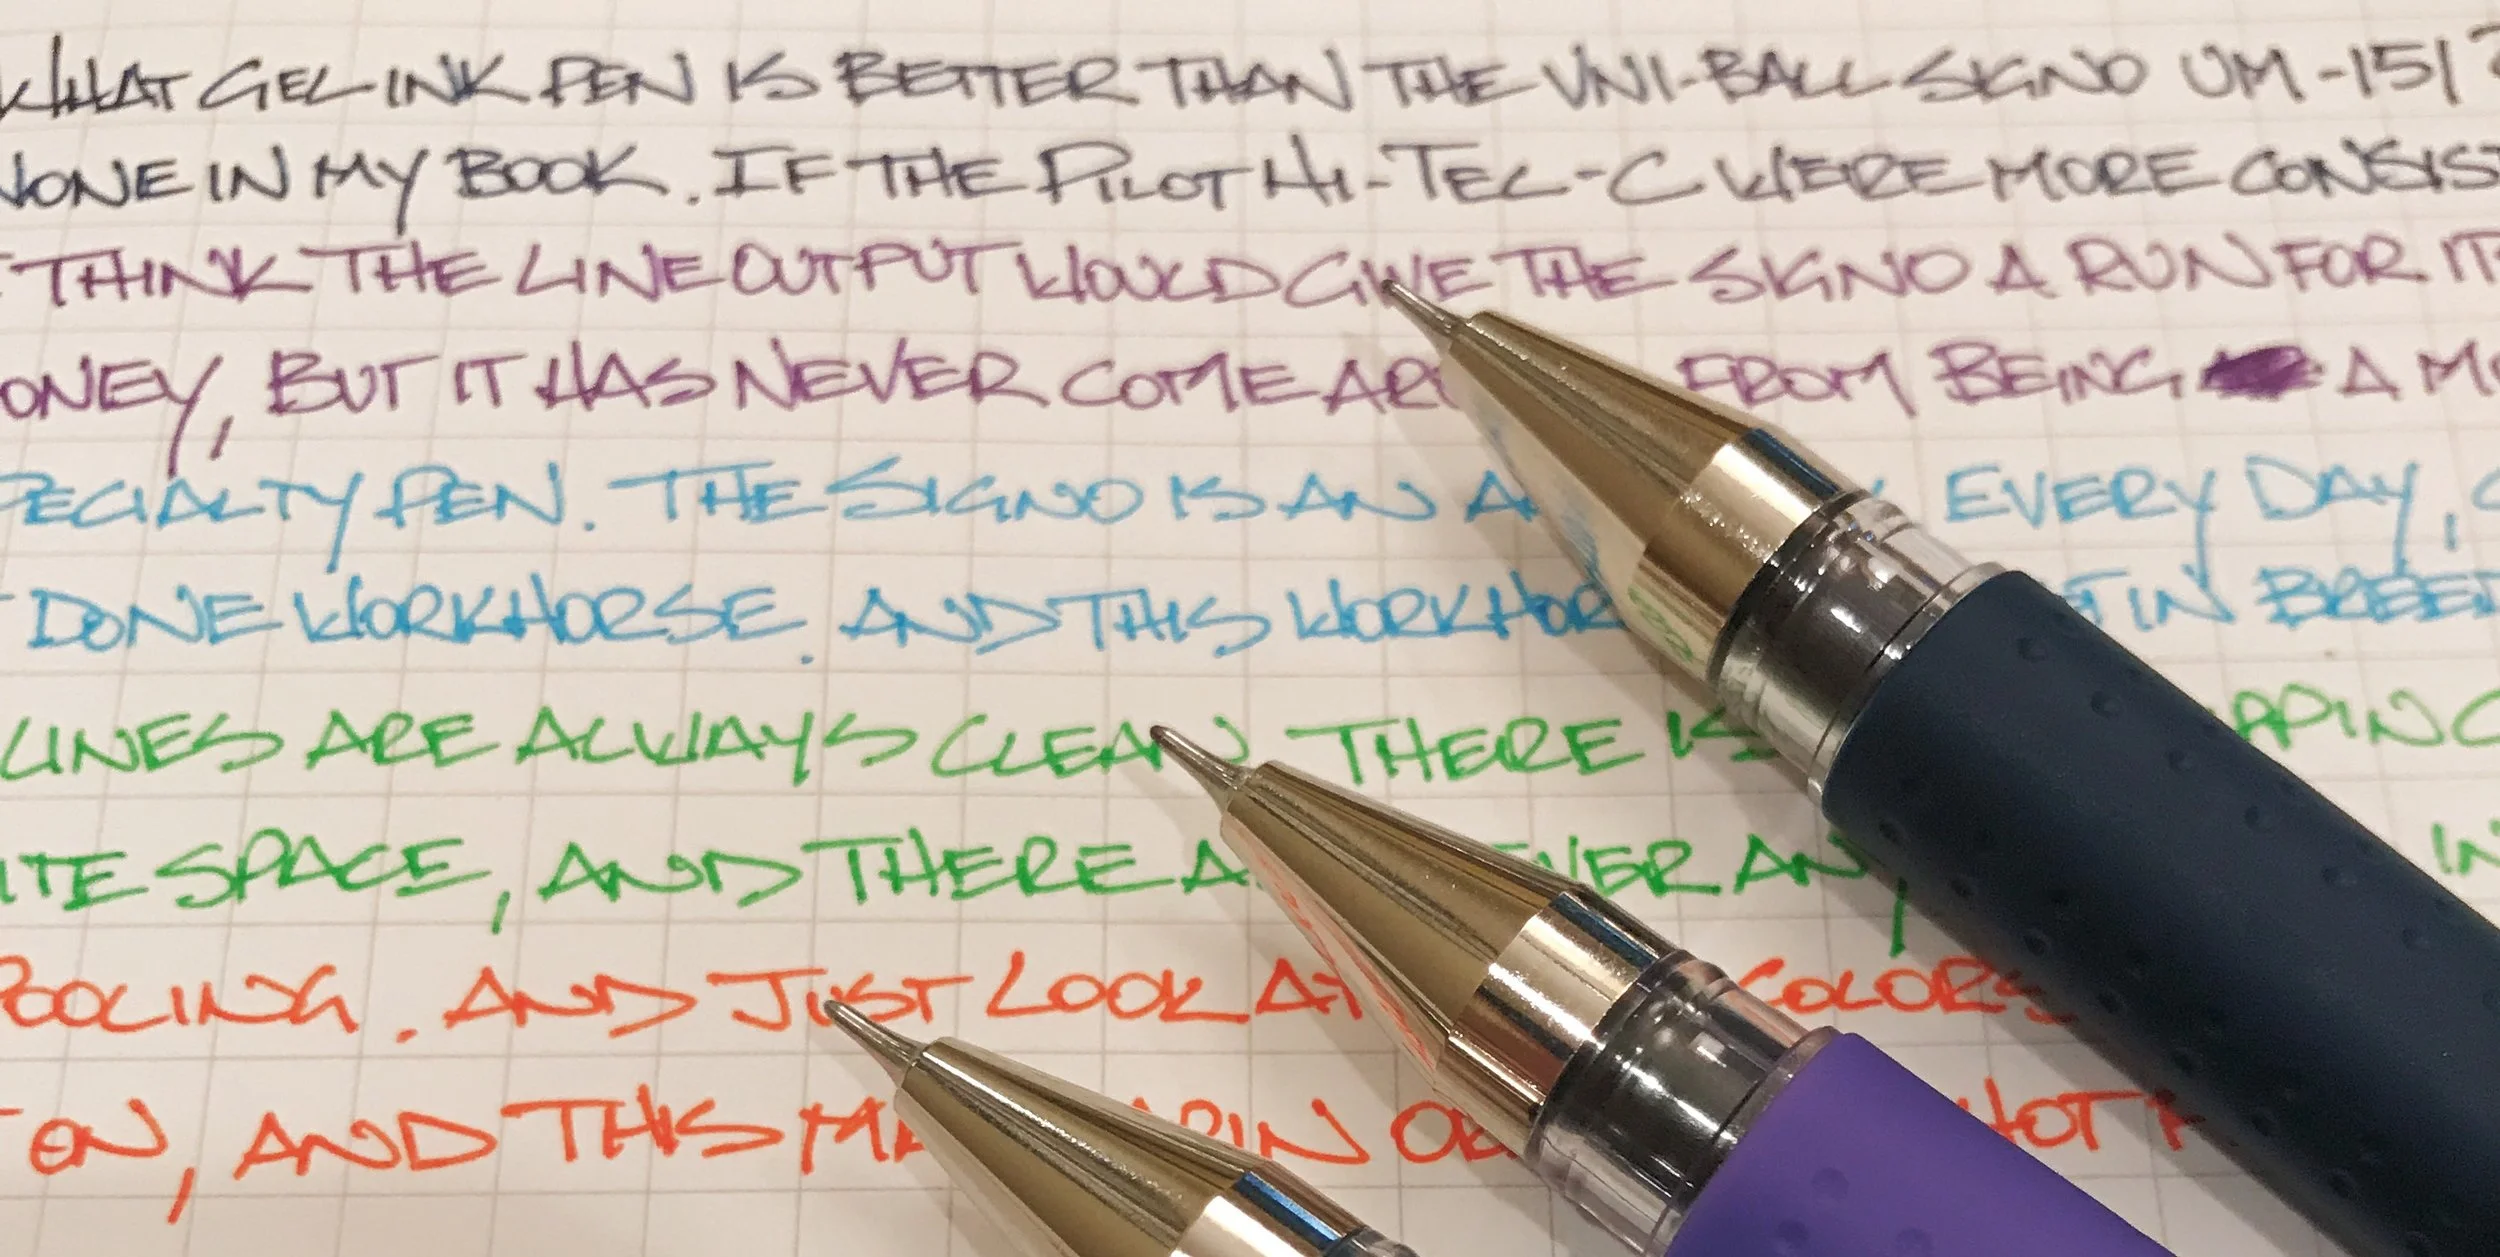 WHAT GEL INK PEN IS BETTER THAN THE UNI-BALL SIGNO UM-151?
NONE IN MY BOOK. IF THE PILOT HI-TEC-C WERE MORE CONSIS
I THINK THE LINE OUTPUT WOULD GIVE THE SIGNO A RUN FOR IT
ONEY, BUT IT HAS NEVER COME FROM BEING A
PECIALTY PEN. THE SIGNO IS AN EVERY DAY,
DONE WORKHORSE. AND THIS IN BREED
LINES ARE ALWAYS CLEAN THERE IS
ITE SPACE, AND THERE EVER ANY
POOLING. AND JUST LOOK AT COLORS
ON, AND THIS